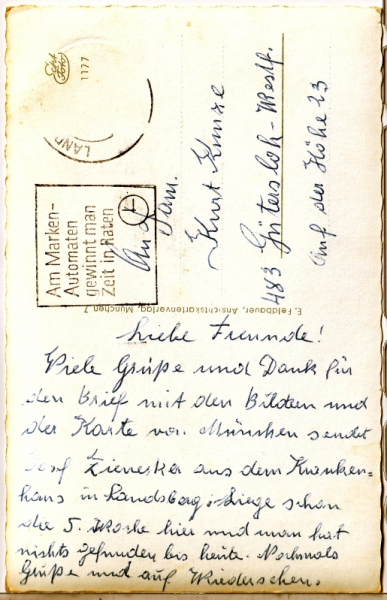 Echt Foto
1177
LAND
Am Marken-
Automaten
gewinnt man
Zeit in Raten
An Fam.
Kurt Kunze
483 Gütersloh-Westf.
Auf der Höhe 23
E. Feldbauer, Ansichtskartenverlag, München 7
Liebe Freunde!
Viele Grüße und Dank für
den Brief mit den Bildern und
der Karte von München sendet
Josef aus dem Kranken=
haus in Landsberg. Liege schon
die 5. Woche hier und man hat
nichts gefunden bis heute. Nochmals
Grüße und auf Wiedersehen.